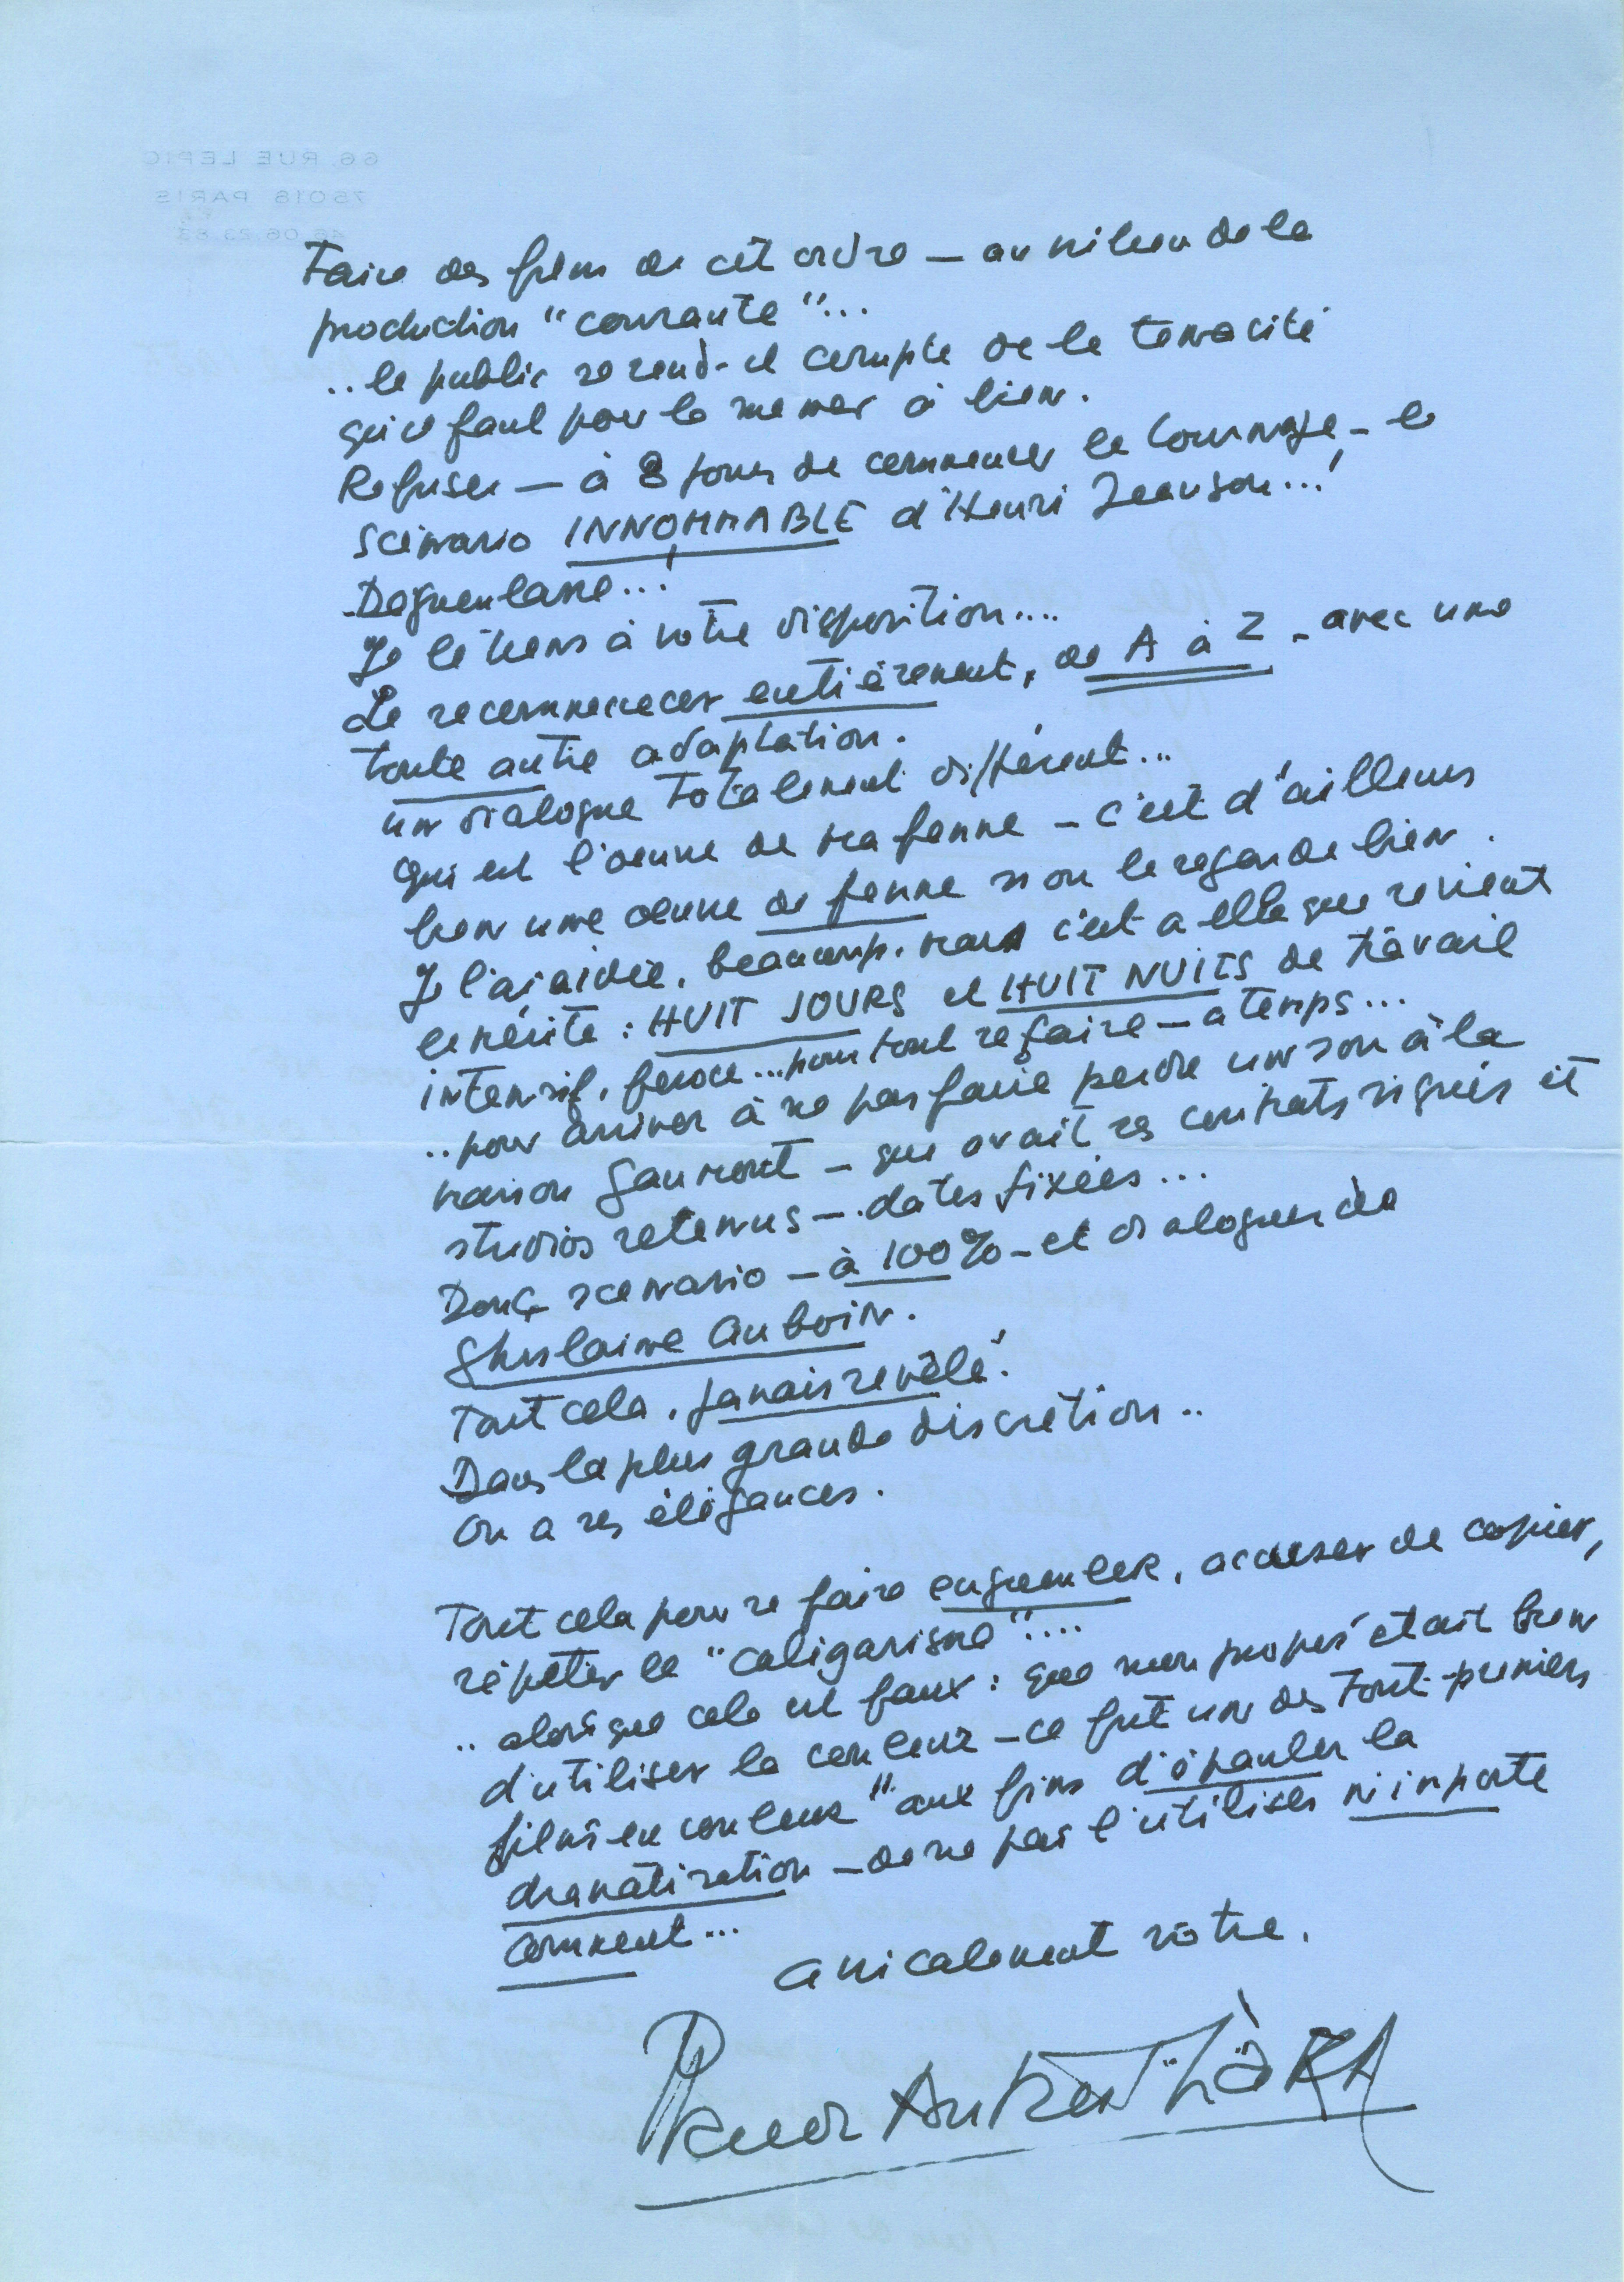 66, RUE LEPIC
75018 PARIS
46.06.23.63
Faire des films de cet ordre — au milieu de la
production "courante"...
.. le public se rend-il compte de la tenacité
qu'il faut pour la mener à bien.
Refuser — à 8 jours de commencer le tournage, — le
scénario INNOMMABLE d'Henri Jeanson...!
Degueulasse...!
Je le tiens à votre disposition....
Le recommencer entièrement, de A à Z - avec une
toute autre adaptation.
un dialogue totalement différent...
qui est l'oeuvre de ma femme — c'est d'ailleurs
bien une oeuvre de femme si on le regarde bien.
Je l'ai aidée, beaucoup, mais c'est à elle que revient
le mérite : HUIT JOURS et HUIT NUITS de travail
intensif, féroce... pour tout refaire — a temps...
.. pour arriver à ne pas faire perdre un sou à la
maison Gaumont — qui avait ses contrats signés et
studios retenus — dates fixées...
Donc, scenario — à 100% — et dialogues de
Ghislaine Auboin.
Tout cela, jamais révélé.
Dans la plus grande discrétion..
On a ses élégances.
Tout cela pour se faire engueuler, accuser de copier,
répéter le "caligarisme"....
.. alors que cela est faux : que mon propos était bien
d'utiliser la couleur — ce fut un des tout-premiers
films en couleur" aux fins d'épauler la
dramatisation — de ne pas l'utiliser n'importe
comment...
amicalement vôtre.
Claude Autant-Lara